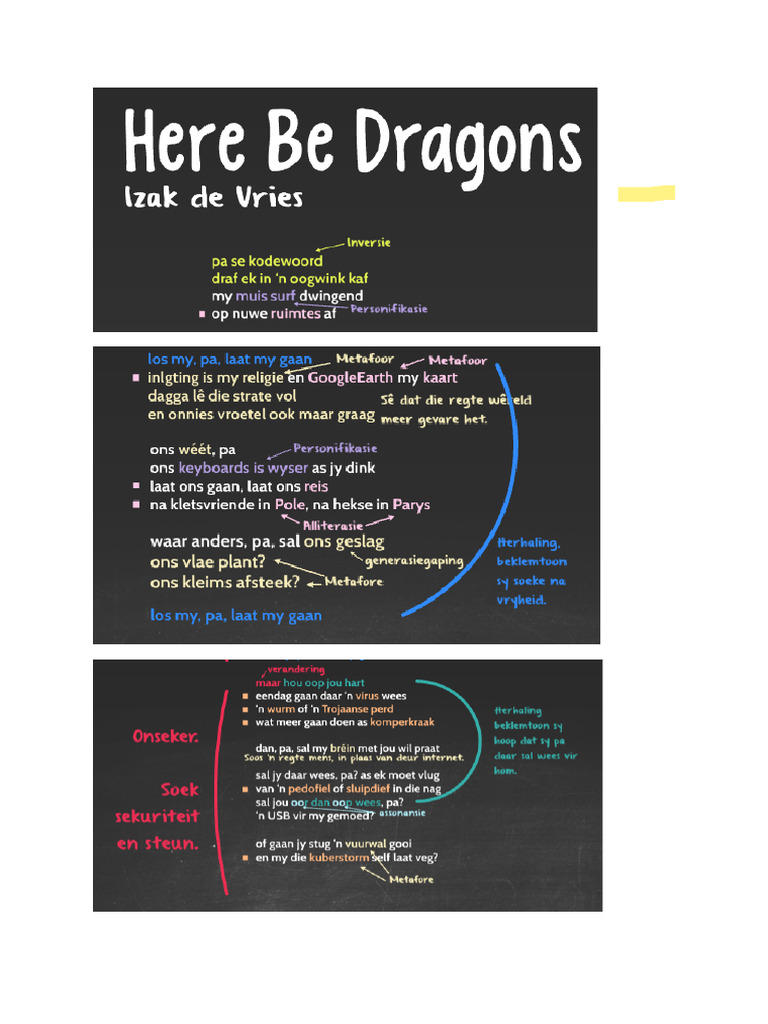 Here Be Dragons
Izak de Vries
Inversie
pa se kodewoord
draf ek in 'n oogwink kaf
my muis surf dwingend
Personifikasie
op nuwe ruimtes af
los my, pa, laat my gaan
Metafoor
Metafoor
inlgting is my religie en GoogleEarth my kaart
dagga lê die strate vol
Sê dat die regte wêreld
en onnies vroetel ook maar graag
meer gevare het.
ons wéét, pa
Personifikasie
ons keyboards is wyser as jy dink
laat ons gaan, laat ons reis
na kletsvriende in Pole, na hekse in Parys
Alliterasie
waar anders, pa, sal ons geslag
ons vlae plant?
generasiegaping
ons kleims afsteek?
Metafore
Herhaling,
beklemtoon
sy soeke na
vryheid.
los my, pa, laat my gaan
verandering
maar hou oop jou hart
eendag gaan daar 'n virus wees
'n wurm of 'n Trojaanse perd
wat meer gaan doen as komperkraak
Herhaling
beklemtoon sy
hoop dat sy pa
daar sal wees vir
hom.
Onseker.
Soek
sekuriteit
en steun.
dan, pa, sal my brêin met jou wil praat
Soos 'n regte mens, in plaas van deur internet.
sal jy daar wees, pa? as ek moet vlug
van 'n pedofiel of sluipdief in die nag
sal jou oor dan oop wees, pa?
assonansie
'n USB vir my gemoed?
of gaan jy stug 'n vuurwal gooi
en my die kuberstorm self laat veg?
Metafore